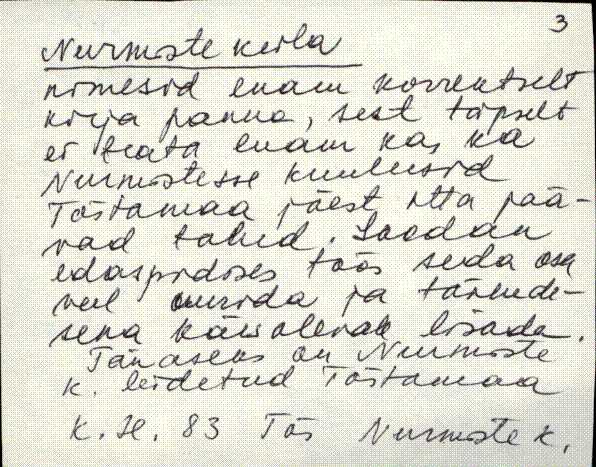 3
Nurmiste küla
nimesid enam korrektselt
kirja panna, sest täpselt
ei teata enam kas ka
Nurmistesse kuulusid
Tõstamaa jõest itta jää-
vad talud. Loodan
edaspidises töös seda osa
veel uurida ja täiende-
sena käesolevale lisada.
Tänaseks on Nurmiste
k. leidetud Tõstamaa
k. H. 83 Tõs Nurmiste k.